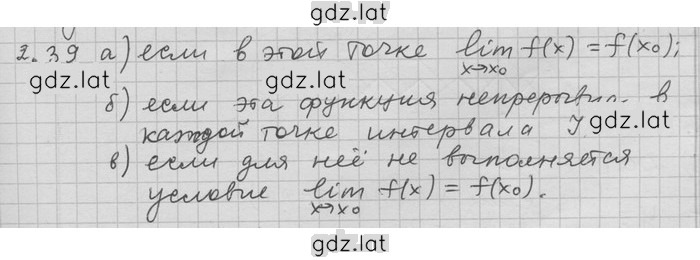 gdz.lat
2.39 а) если в этой точке lim f(x) = f(x₀);
x→x₀
gdz.lat gdz.lat
б) если эта функция непрерывн. в
каждой точке интервала I. gdz.lat
в) если для неё не выполняется
gdz.lat
условие lim f(x) = f(x₀).
x→x₀
gdz.lat